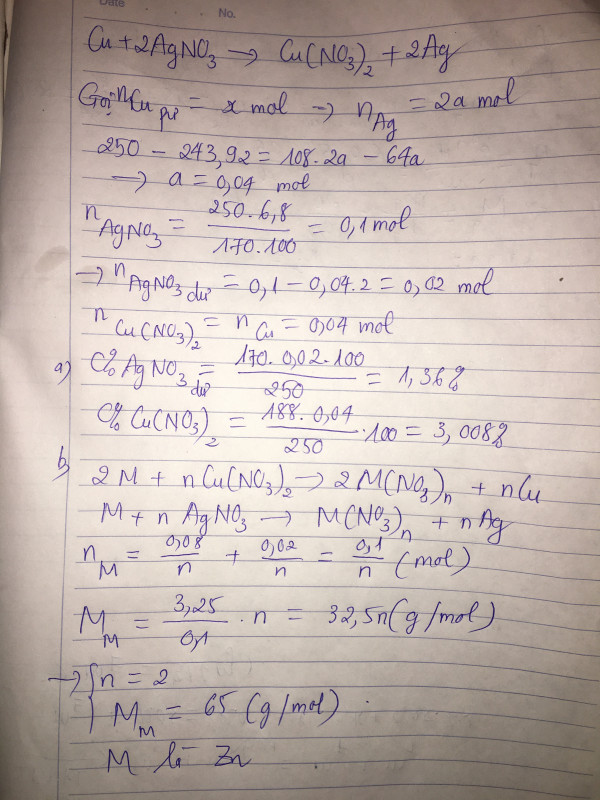 Date No.
Cu + 2AgNO₃ → Cu(NO₃)₂ + 2Ag
Gọi nCu pư = x mol → nAg = 2a mol
250 - 243,92 = 108.2a - 64a
→ a = 0,04 mol
nAgNO₃ = 250.6,8 / 170.100 = 0,1 mol
→ nAgNO₃ dư = 0,1 - 0,04.2 = 0,02 mol
nCu(NO₃)₂ = nCu = 0,04 mol
a) C% AgNO₃ dư = 170.0,02.100 / 250 = 1,36%
C% Cu(NO₃)₂ = 188.0,04 / 250 .100 = 3,008%
b) 2M + nCu(NO₃)₂ → 2M(NO₃)n + nCu
M + n AgNO₃ → M(NO₃)n + nAg
nM = 0,08/n + 0,02/n = 0,1/n (mol)
MM = 3,25/0,1 . n = 32,5n (g/mol)
→ { n = 2
MM = 65 (g/mol)
M là Zn